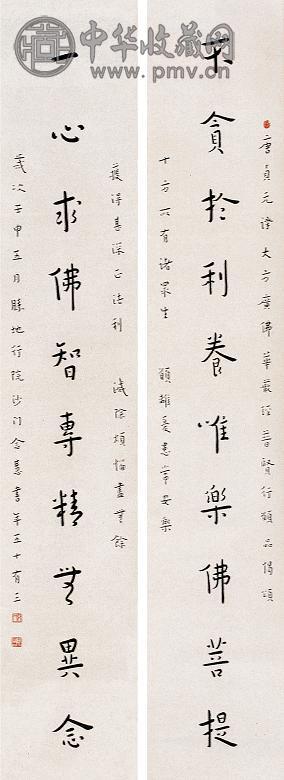 中华收藏网
www.pmv.cn
唐貞元譯大方廣佛華嚴經普賢行願品偈頌
不貪於利養唯樂佛菩提
十方所有諸眾生 願離憂患常安樂
獲得甚深正法利 滅除煩惱盡無餘
一心求佛智專精無異念
歲次壬申五月地行院沙门念慧書年五十有三